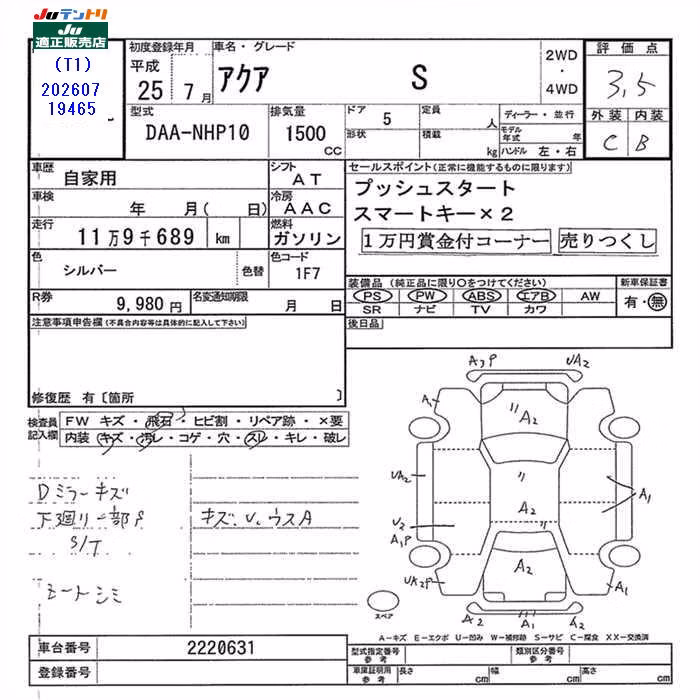 JUテントリ
JU
適正販売店
(T1)
202607
19465
初度登録年月
平成
25 年 7 月
車名・グレード
アクア S
2WD
・
4WD
評価点
3,5
外装 内装
C B
型式
DAA-NHP10
排気量
1500
CC
ドア 5
形状
定員 人
積載 kg
ディーラー・並行
モデル年式 年
ハンドル 左・右
車歴 自家用
シフト AT
車検 年 月( 日)
冷房 AAC
走行 11万9千689 km
燃料 ガソリン
色 シルバー 色替
色コード 1F7
R券 9,980 円
名変通知期限 月 日
セールスポイント(正常に機能するものに限ります)
プッシュスタート
スマートキー×2
1万円賞金付コーナー 売りつくし
装備品(純正品に限り○をつけてください)
新車保証書
PS PW ABS エアB AW
有・無
SR ナビ TV カワ
後日品
注意事項申告欄(不具合内容等は具体的に記入して下さい)
修復歴 有〔箇所 〕
検査員記入欄
FW キズ・飛石・ヒビ割・リペア跡・×要
内装 キズ・汚レ・コゲ・穴・スレ・キレ・破レ
Dミラーキズ
下廻リ一部P
S/T
キズ、U、ウスA
シートシミ
A3P UA2
A1
A2
UA2
A2
A1
U2
A1P
A2
UA2P
A1
A2 A1 A2
スペア
A－キズ E－エクボ U－凹み W－補修跡 S－サビ C－腐食 XX－交換済
車台番号 2220631
登録番号
型式指定番号 参考
類別区分番号 参考
車庫証明用 参考
長さ cm 幅 cm 高さ cm